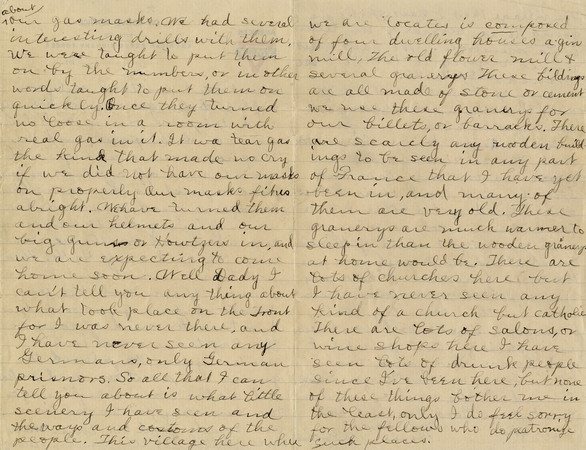 about
our gas masks. We had several
interesting drills with them.
We were taught to put them
on by the numbers, or in other
words taught to put them on
quickly. Once they turned
no loose in a room with
real gas in it. It wa tear gas
the kind that made no cry
if we did not have our masks
on properly Our masks fitted
alright. We have turned them
and our helmets and our
big guns or Howtzers in, and
we are expecting to come
home soon. Well Dady I
can't tell you any thing about
what took place on the front
for I was never there, and
I have never seen any
Germans, only German
prisnors. So all that I can
tell you about is what little
scenery I have seen and
the ways and costoms of the
people. This village here where
we are locates is composed
of four dwelling houses a gin
mill, the old flower mill &
several granerys These bildings
are all made of stone or cement
we use these granerys for
our billets, or barracks. There
are scarcly any wooden build
ings to be seen in any part
of France that I have yet
been in, and many of
them are very old. These
granerys are much warmer to
sleep in than the wooden granerys
at home would be. There are
lots of churches here but
I have never seen any
kind of a church but catholic
There are lots of salons, or
wine shops here I have
seen lots of drunk people
since I've been here, but none
of these things bother me in
the least, only I do feel sorry
for the fellows who do patronize
such places.